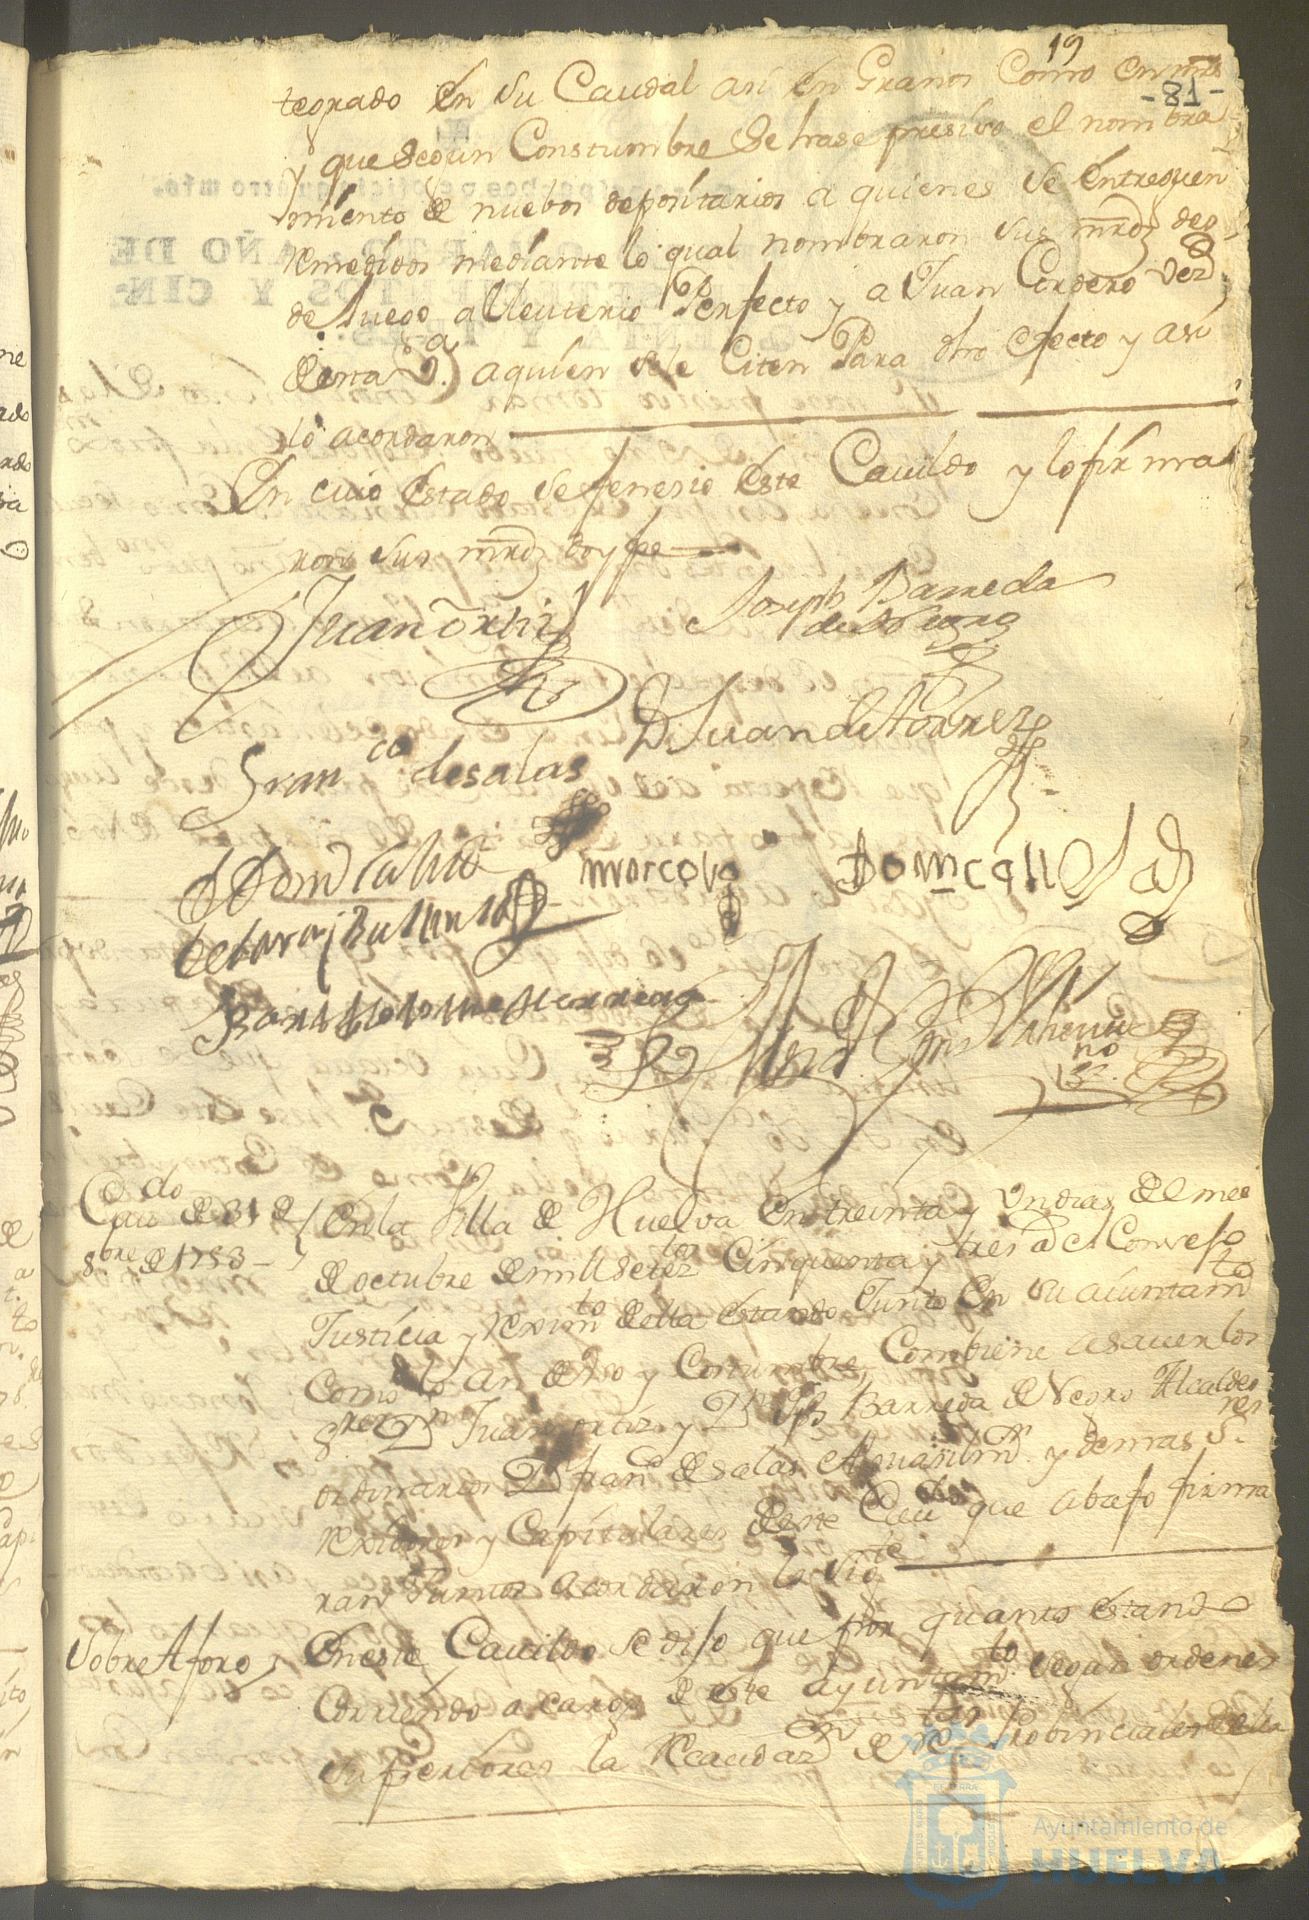 19
-81-
tegrado en su Caudal asi en Granos Como en mrs
y que segun Constumbre Se hase presiso el nombra
miento de nuebos depositarios a quienes se entreguen
Remedidos mediante lo qual nombraron sus mrdz des
de luego a Uleuterio Perfecto y a Juan Cordero vezs
desta Va. a quien se le Citen Para dho efecto y asi
lo acordaron
En cuio estado se fenesio este Cavildo y lo firma
ron sus mrdz doy fe
Juan Ortiz
Joseph Barreda
de Negro
Dn Juan de Torres
Franco de salas
marcos
Bartholome Herrera
Cavdo de 31 de
8bre de 1753
En la Villa de Huelva en treinta y un dias del mes
de octubre de mill seteztos Cinquenta y tres a el Consejo
Justicia y Reximto della estando Junto en su aiuntamto
Como lo an de uso y Costumbre Combiene a saver los
Sres Dn Juan ortiz y Dn Jph Barreda de Negro Alcaldes
ordinarios Dn Franco de salas Alguasil mr. y demas Sres
Rexidores y Capitulares deste Cavdo que abajo firma
ran Juntos acordaron lo sigte
Sobre Aforo
En este Cavildo se dijo que por quanto estando
Corriendo a cargo de este ayuntamto segun ordenes
superiores la Recaudazn de rtas Probinciales della
Ayuntamiento de
HUELVA